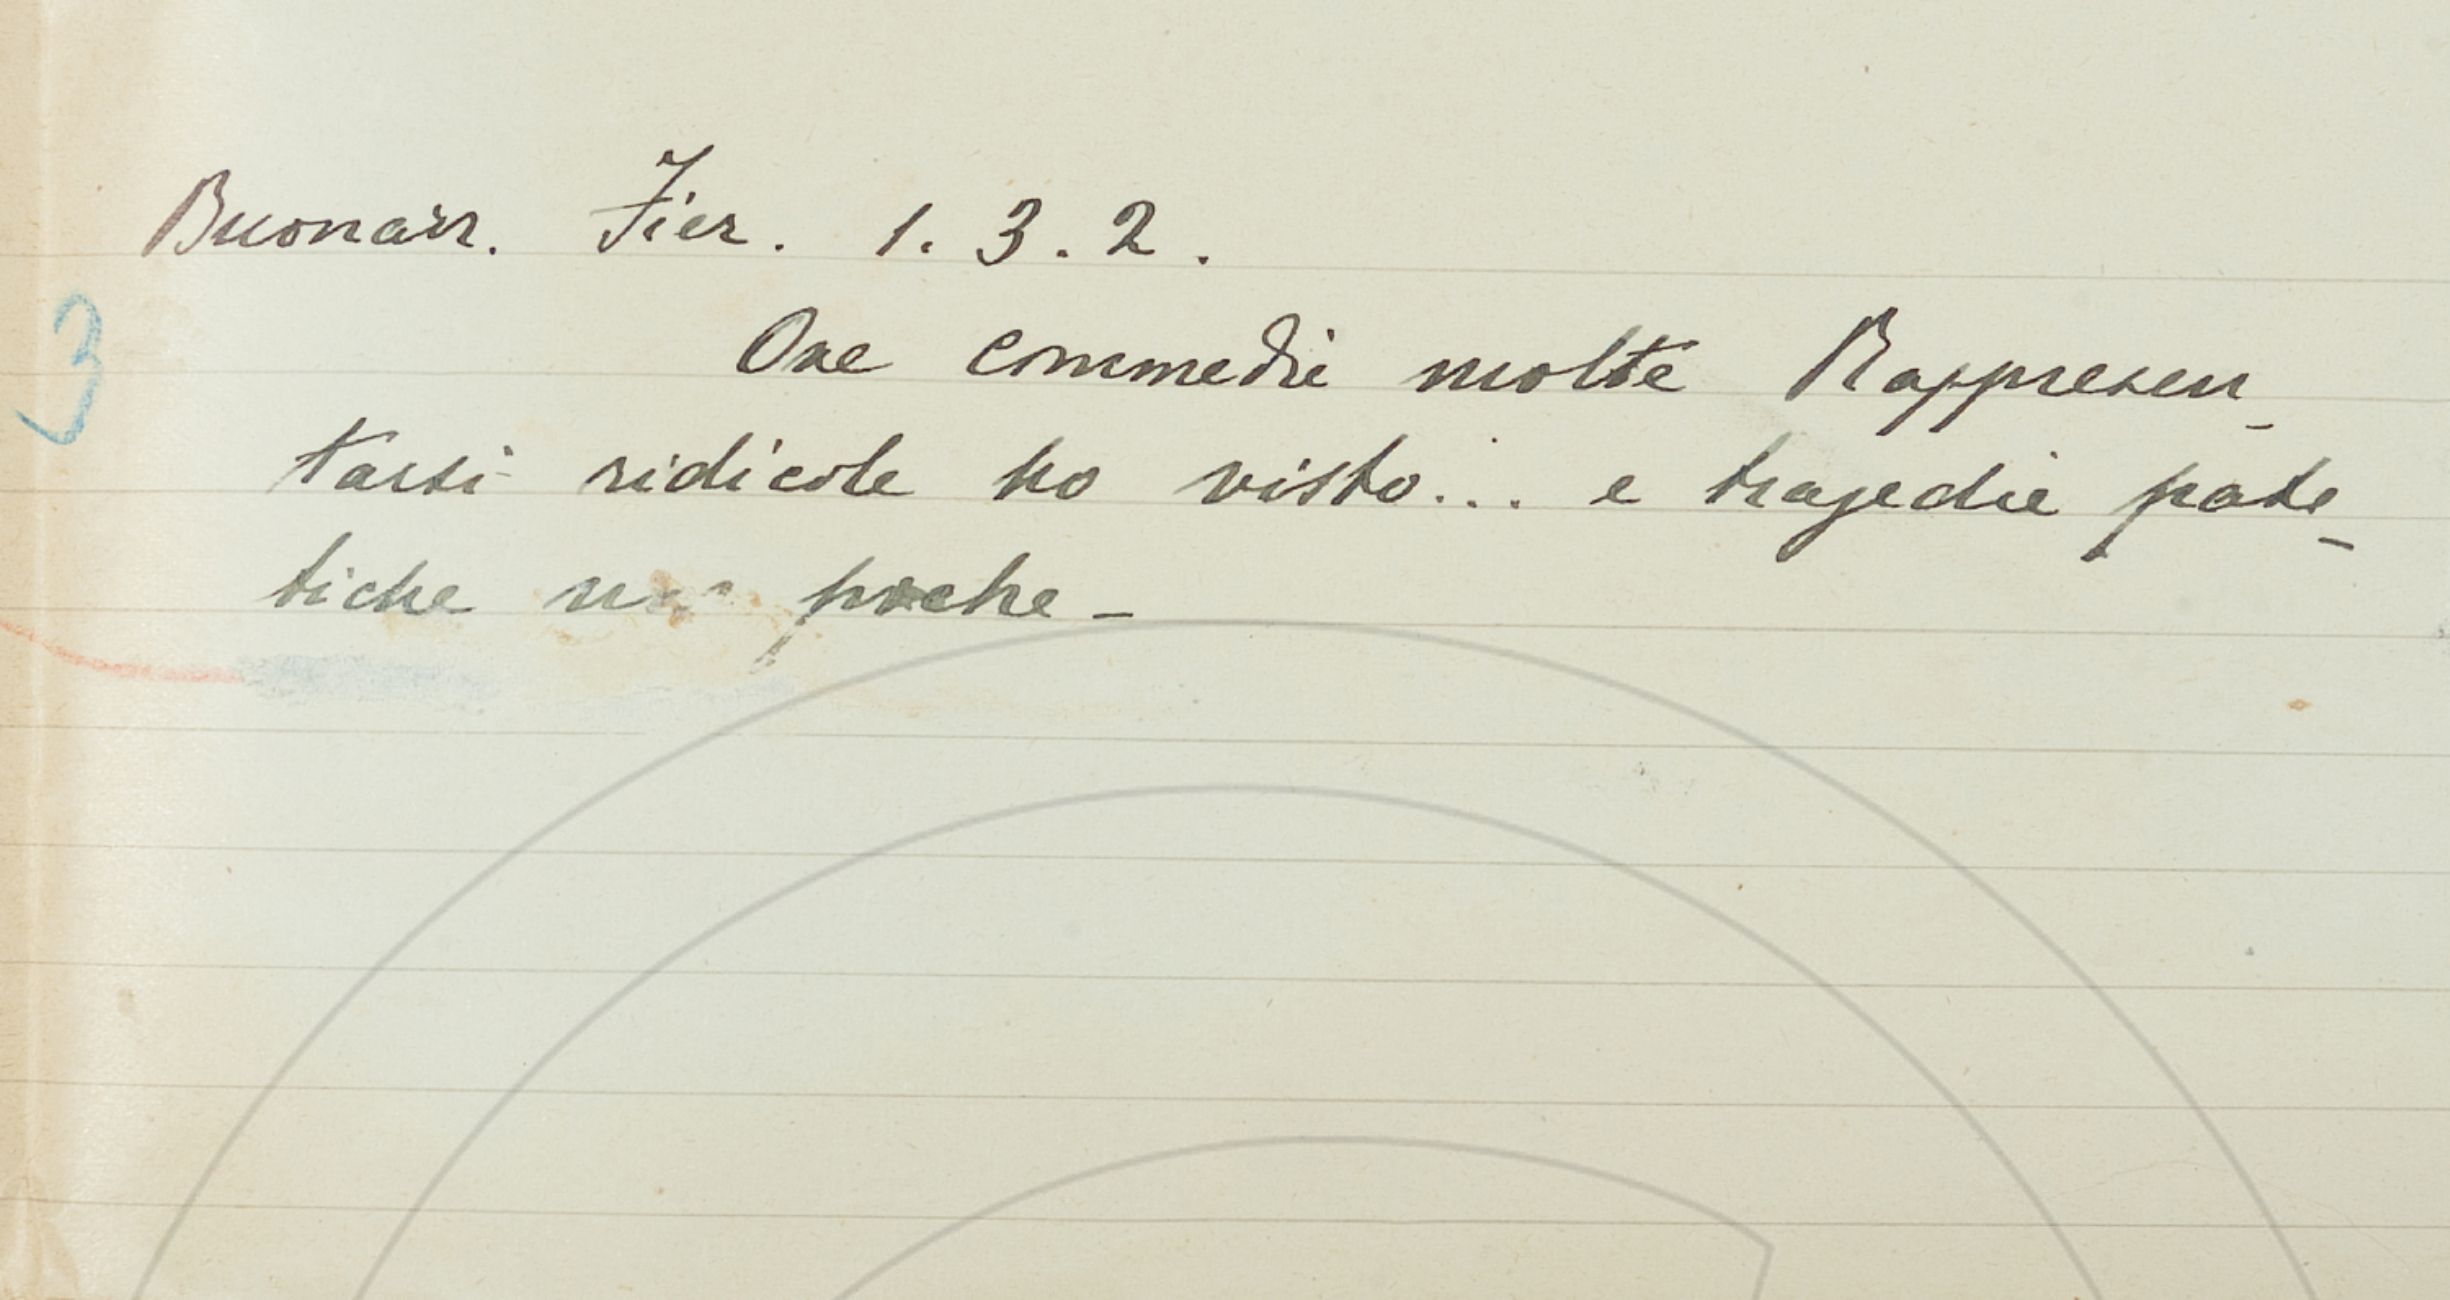 Buonarr. Fier. 1. 3. 2.
3
Ove commedie molte Rappresen_
tarsi ridicole ho visto... e tragedie pate_
tiche poche _